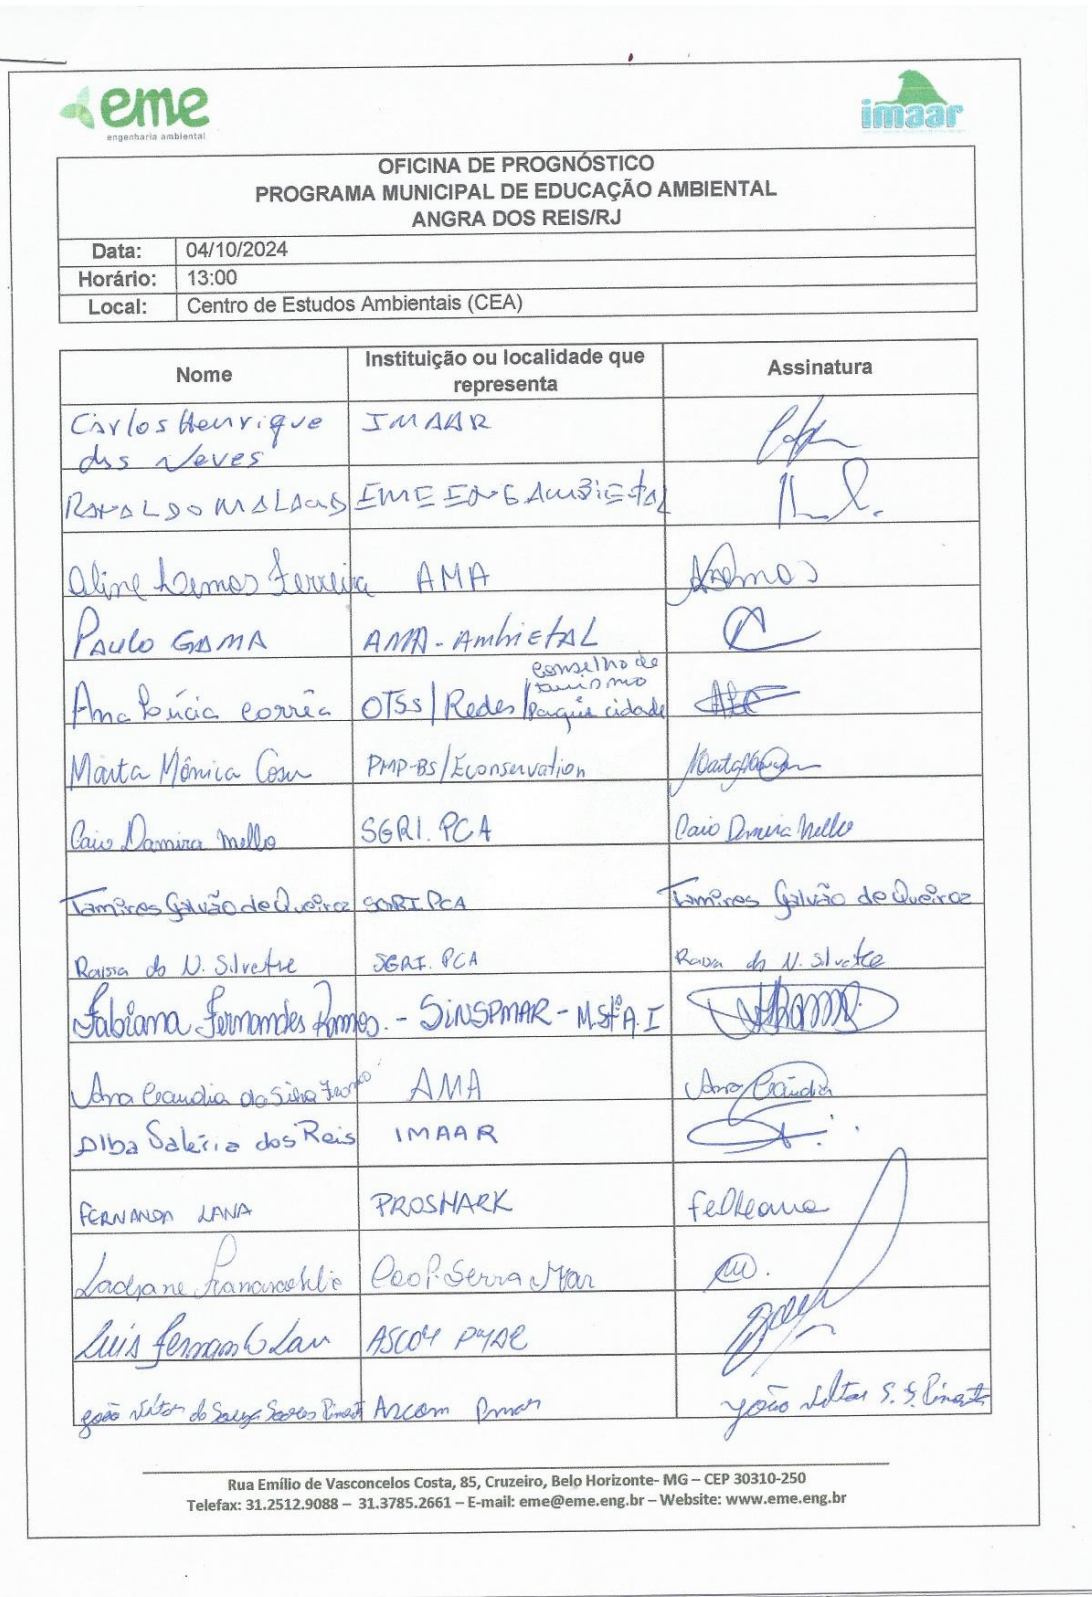 eme
engenharia ambiental
imaar
OFICINA DE PROGNÓSTICO
PROGRAMA MUNICIPAL DE EDUCAÇÃO AMBIENTAL
ANGRA DOS REIS/RJ
Data: 04/10/2024
Horário: 13:00
Local: Centro de Estudos Ambientais (CEA)
Nome Instituição ou localidade que representa Assinatura
Carlos Henrique IMAAR
dos Neves
EME ENG AMBIETAL
Aline Lemos Ferreira AMA Lemos
Paulo GAMA AMA - AmbiETAL
conselho de
turismo
Ana Lúcia Corrêa OTSS/Redes/parque cidade
Marta Mônica PMP-BS/Econservation
Caio Damira Mello SGRI.PCA Caio Damira Mello
Tamires Galvão de Queiroz SGRI.PCA Tamires Galvão de Queiroz
Raissa do N. Silvestre SGRI.PCA Raissa do N. Silvestre
Fabiana Fernandes Ramos. - SINSPMAR - M.Stª A.I
Ana Claudia da Silva AMA Ana Claudia
Alba Valéria dos Reis IMAAR
FERNANDA LANA PROSHARK
CooP. Serra Mar
Luis Fernando Lau
João Vitor de Souza Soares João Vitor S. S.
Rua Emílio de Vasconcelos Costa, 85, Cruzeiro, Belo Horizonte- MG – CEP 30310-250
Telefax: 31.2512.9088 – 31.3785.2661 – E-mail: eme@eme.eng.br – Website: www.eme.eng.br